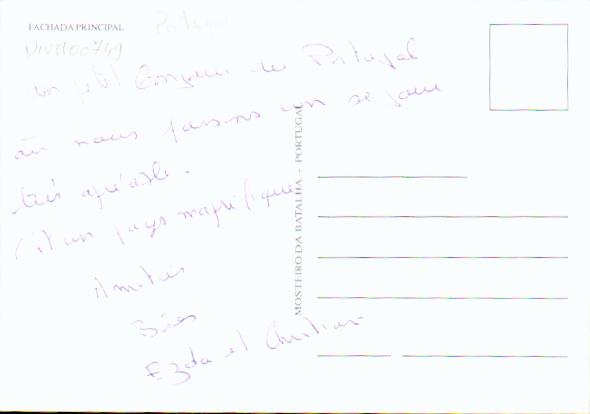 FACHADA PRINCIPAL
Portugal
DIV8100749
un petit bonjour du Portugal
où nous faisons un se jour
très agréable.
C'est un pays magnifique
Amitiés
Bises
et Christian
MOSTEIRO DA BATALHA - PORTUGAL